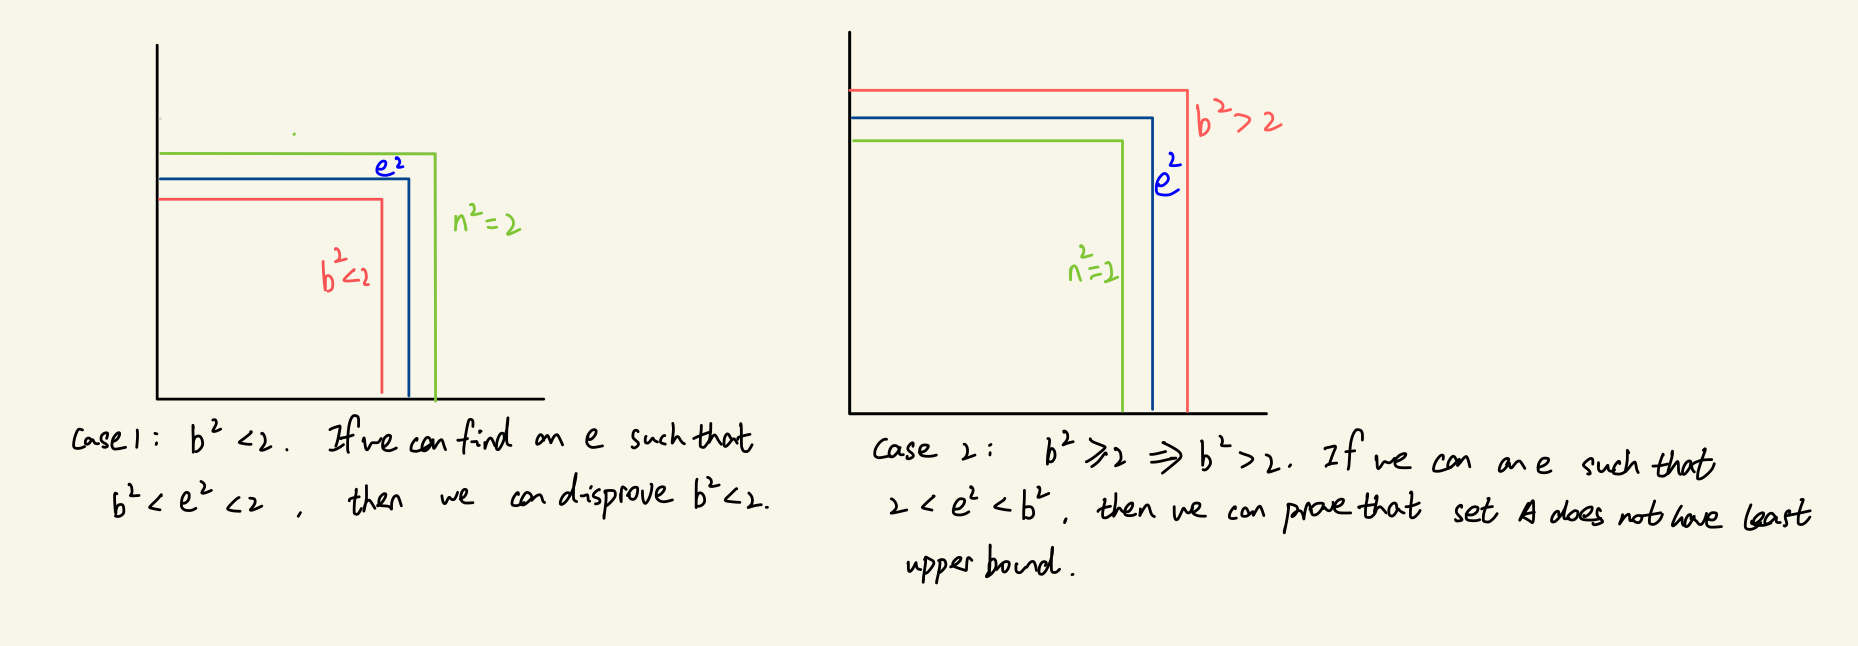 e²
n² = 2
b² < 2
Case 1: b² < 2. If we can find an e such that
b² < e² < 2, then we can disprove b² < 2.
b² > 2
e²
n² = 2
Case 2: b² ⩾ 2 ⇒ b² > 2. If we can an e such that
2 < e² < b², then we can prove that set A does not have least
upper bound.